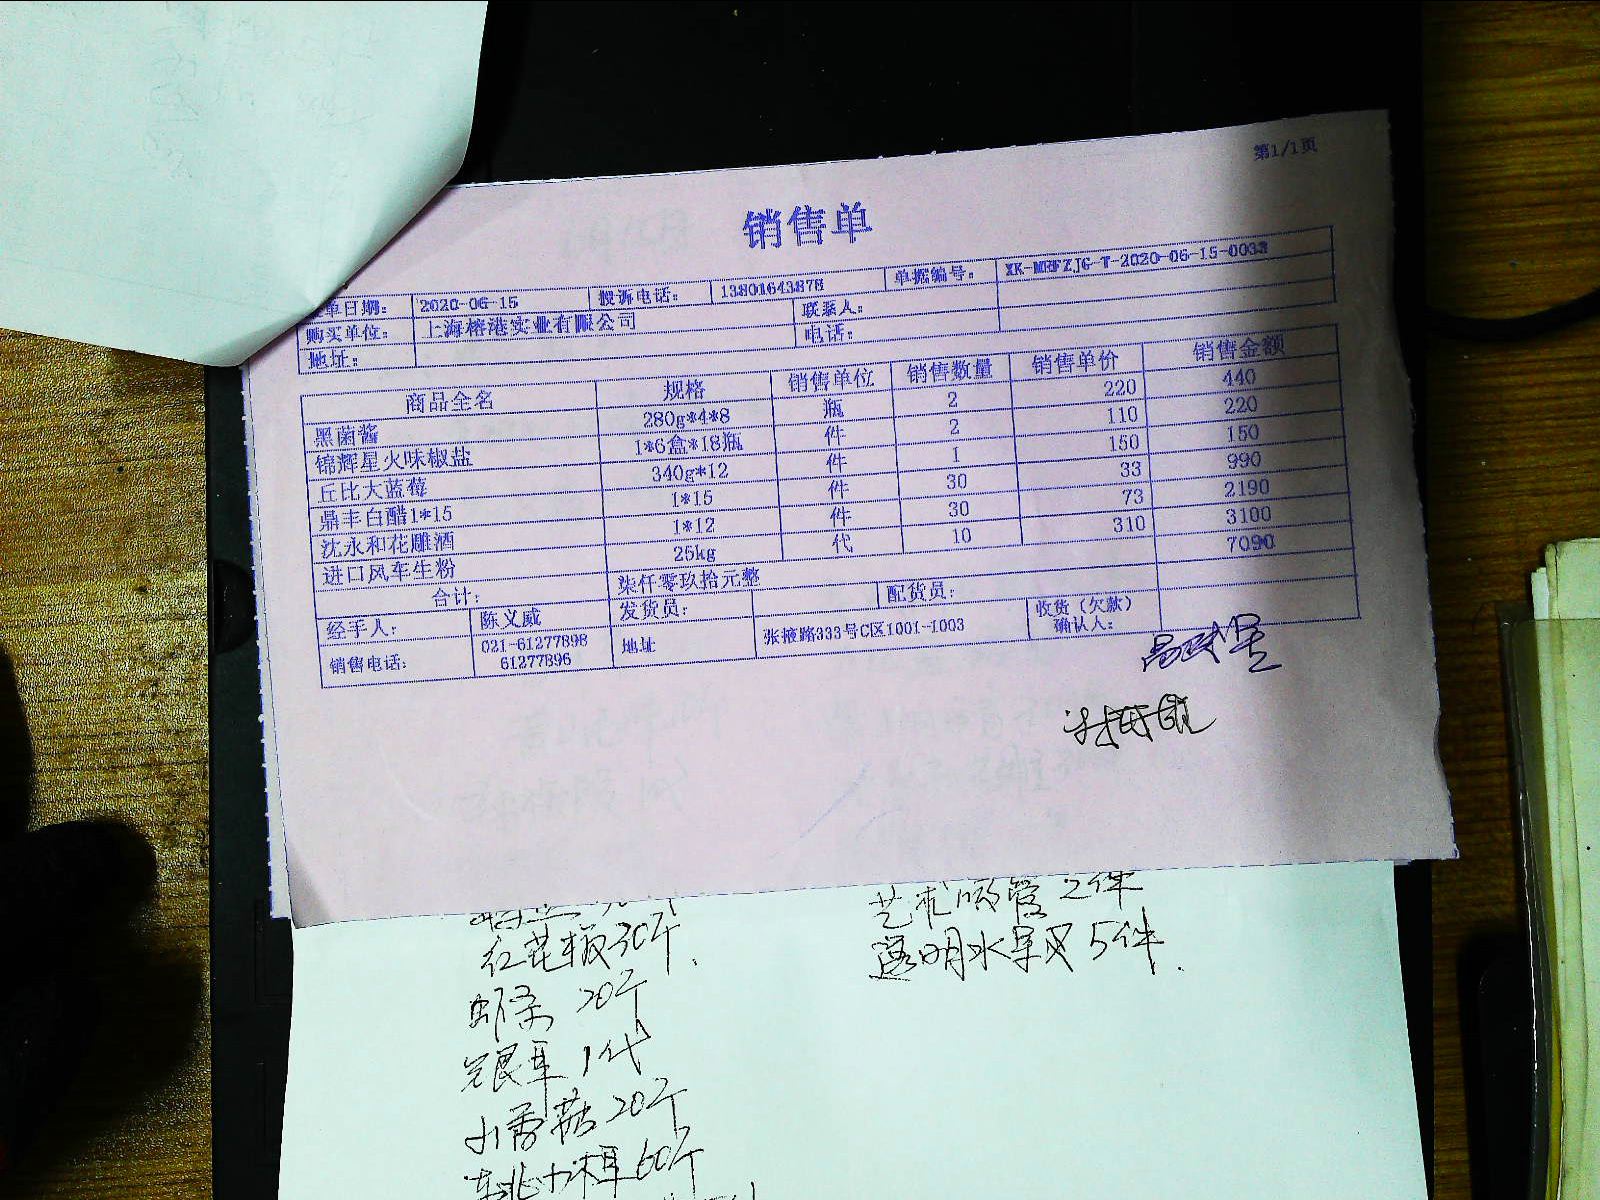 第1/1页
销售单
单日期： 2020-06-15 投诉电话： 13801643878 单据编号： XK-MRFZJG-T-2020-06-15-0038
购买单位： 上海榕港实业有限公司 联系人：
地址： 电话：
商品全名 规格 销售单位 销售数量 销售单价 销售金额
黑菌酱 280g*4*8 瓶 2 220 440
锦辉星火味椒盐 1*6盒*18瓶 件 2 110 220
丘比大蓝莓 340g*12 件 1 150 150
鼎丰白醋1*15 1*15 件 30 33 990
沈永和花雕酒 1*12 件 30 73 2190
进口风车生粉 25kg 代 10 310 3100
合计： 柒仟零玖拾元整 7090
经手人： 陈义威 发货员： 配货员： 收货（欠款）确认人：
销售电话： 021-61277898 61277896 地址 张掖路333号C区1001-1003
艺术吸管 2件
红花板30斤. 透明水果叉 5件.
虾米 20斤
银耳 1代
小香菇 20斤
东北木耳 60斤